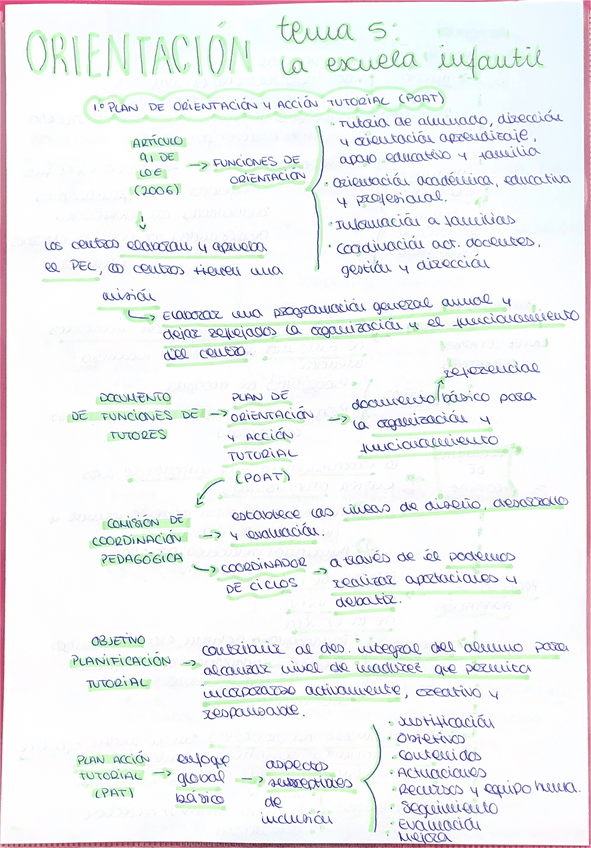 ORIENTACIÓN tema 5:
la escuela infantil
1.º PLAN DE ORIENTACIÓN Y ACCIÓN TUTORIAL (POAT)
ARTÍCULO
91 DE
LOE
(2006)
→ FUNCIONES DE
ORIENTACIÓN
· Tutoría de alumnado, dirección
y orientación aprendizaje,
apoyo educativo y familia
· Orientación académica, educativa
y profesional.
· Información a familias
· Coordinación act. docentes,
gestión y dirección
los centros elaboran y aprueba
el PEC, centros tienen una
misión
→ Elaborar una programación general anual y
dejar reflejados la organización y el funcionamiento
del centro.
DOCUMENTO
DE FUNCIONES DE
TUTORES
→ PLAN DE
ORIENTACIÓN
Y ACCIÓN
TUTORIAL
(POAT)
referencial
→ documento básico para
la organización y
funcionamiento
COMISIÓN DE
COORDINACIÓN
PEDAGÓGICA
→ establece las líneas de diseño, desarrollo
y evaluación.
→ COORDINADOR
DE CICLOS
→ a través de él podemos
realizar aportaciones y
debatir.
OBJETIVO
PLANIFICACIÓN
TUTORIAL
→ contribuir al des. integral del alumno para
alcanzar nivel de madurez que permita
incorporarse activamente, creativo y
responsable.
PLAN ACCIÓN
TUTORIAL
(PAT)
→ enfoque
global
básico
→ aspectos
susceptibles
de
inclusión
· Justificación
· Objetivos
· Contenidos
· Actuaciones
· Recursos y equipo huma.
· Seguimiento
· Evaluación
· Mejora